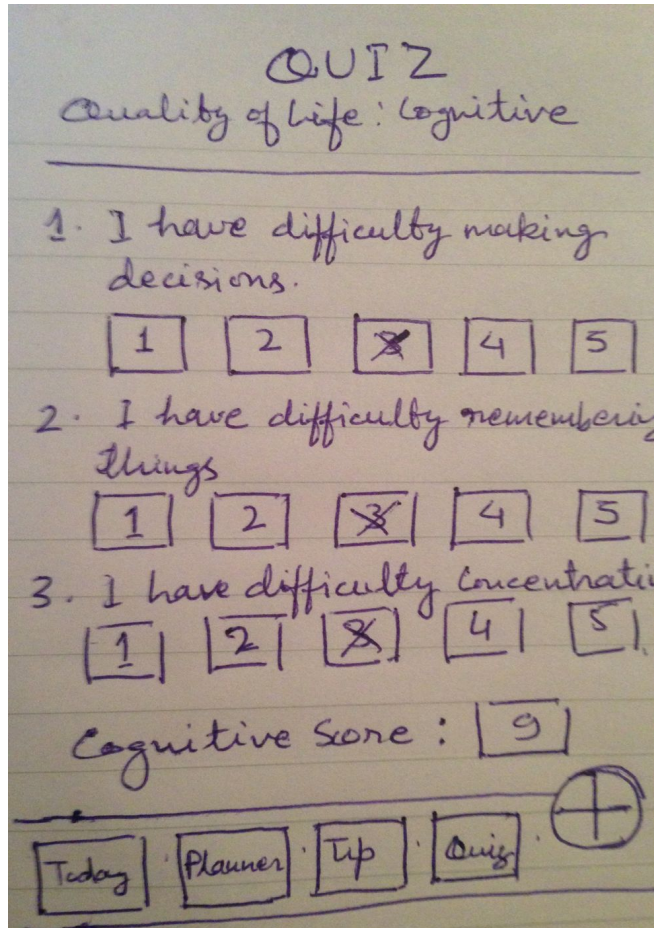 QUIZ
Quality of Life: Cognitive
1. I have difficulty making
decisions.
1 2 3 4 5
2. I have difficulty remembering
things
1 2 3 4 5
3. I have difficulty Concentrati
1 2 3 4 5
Cognitive Score: 9
Today Planner Tip Quiz